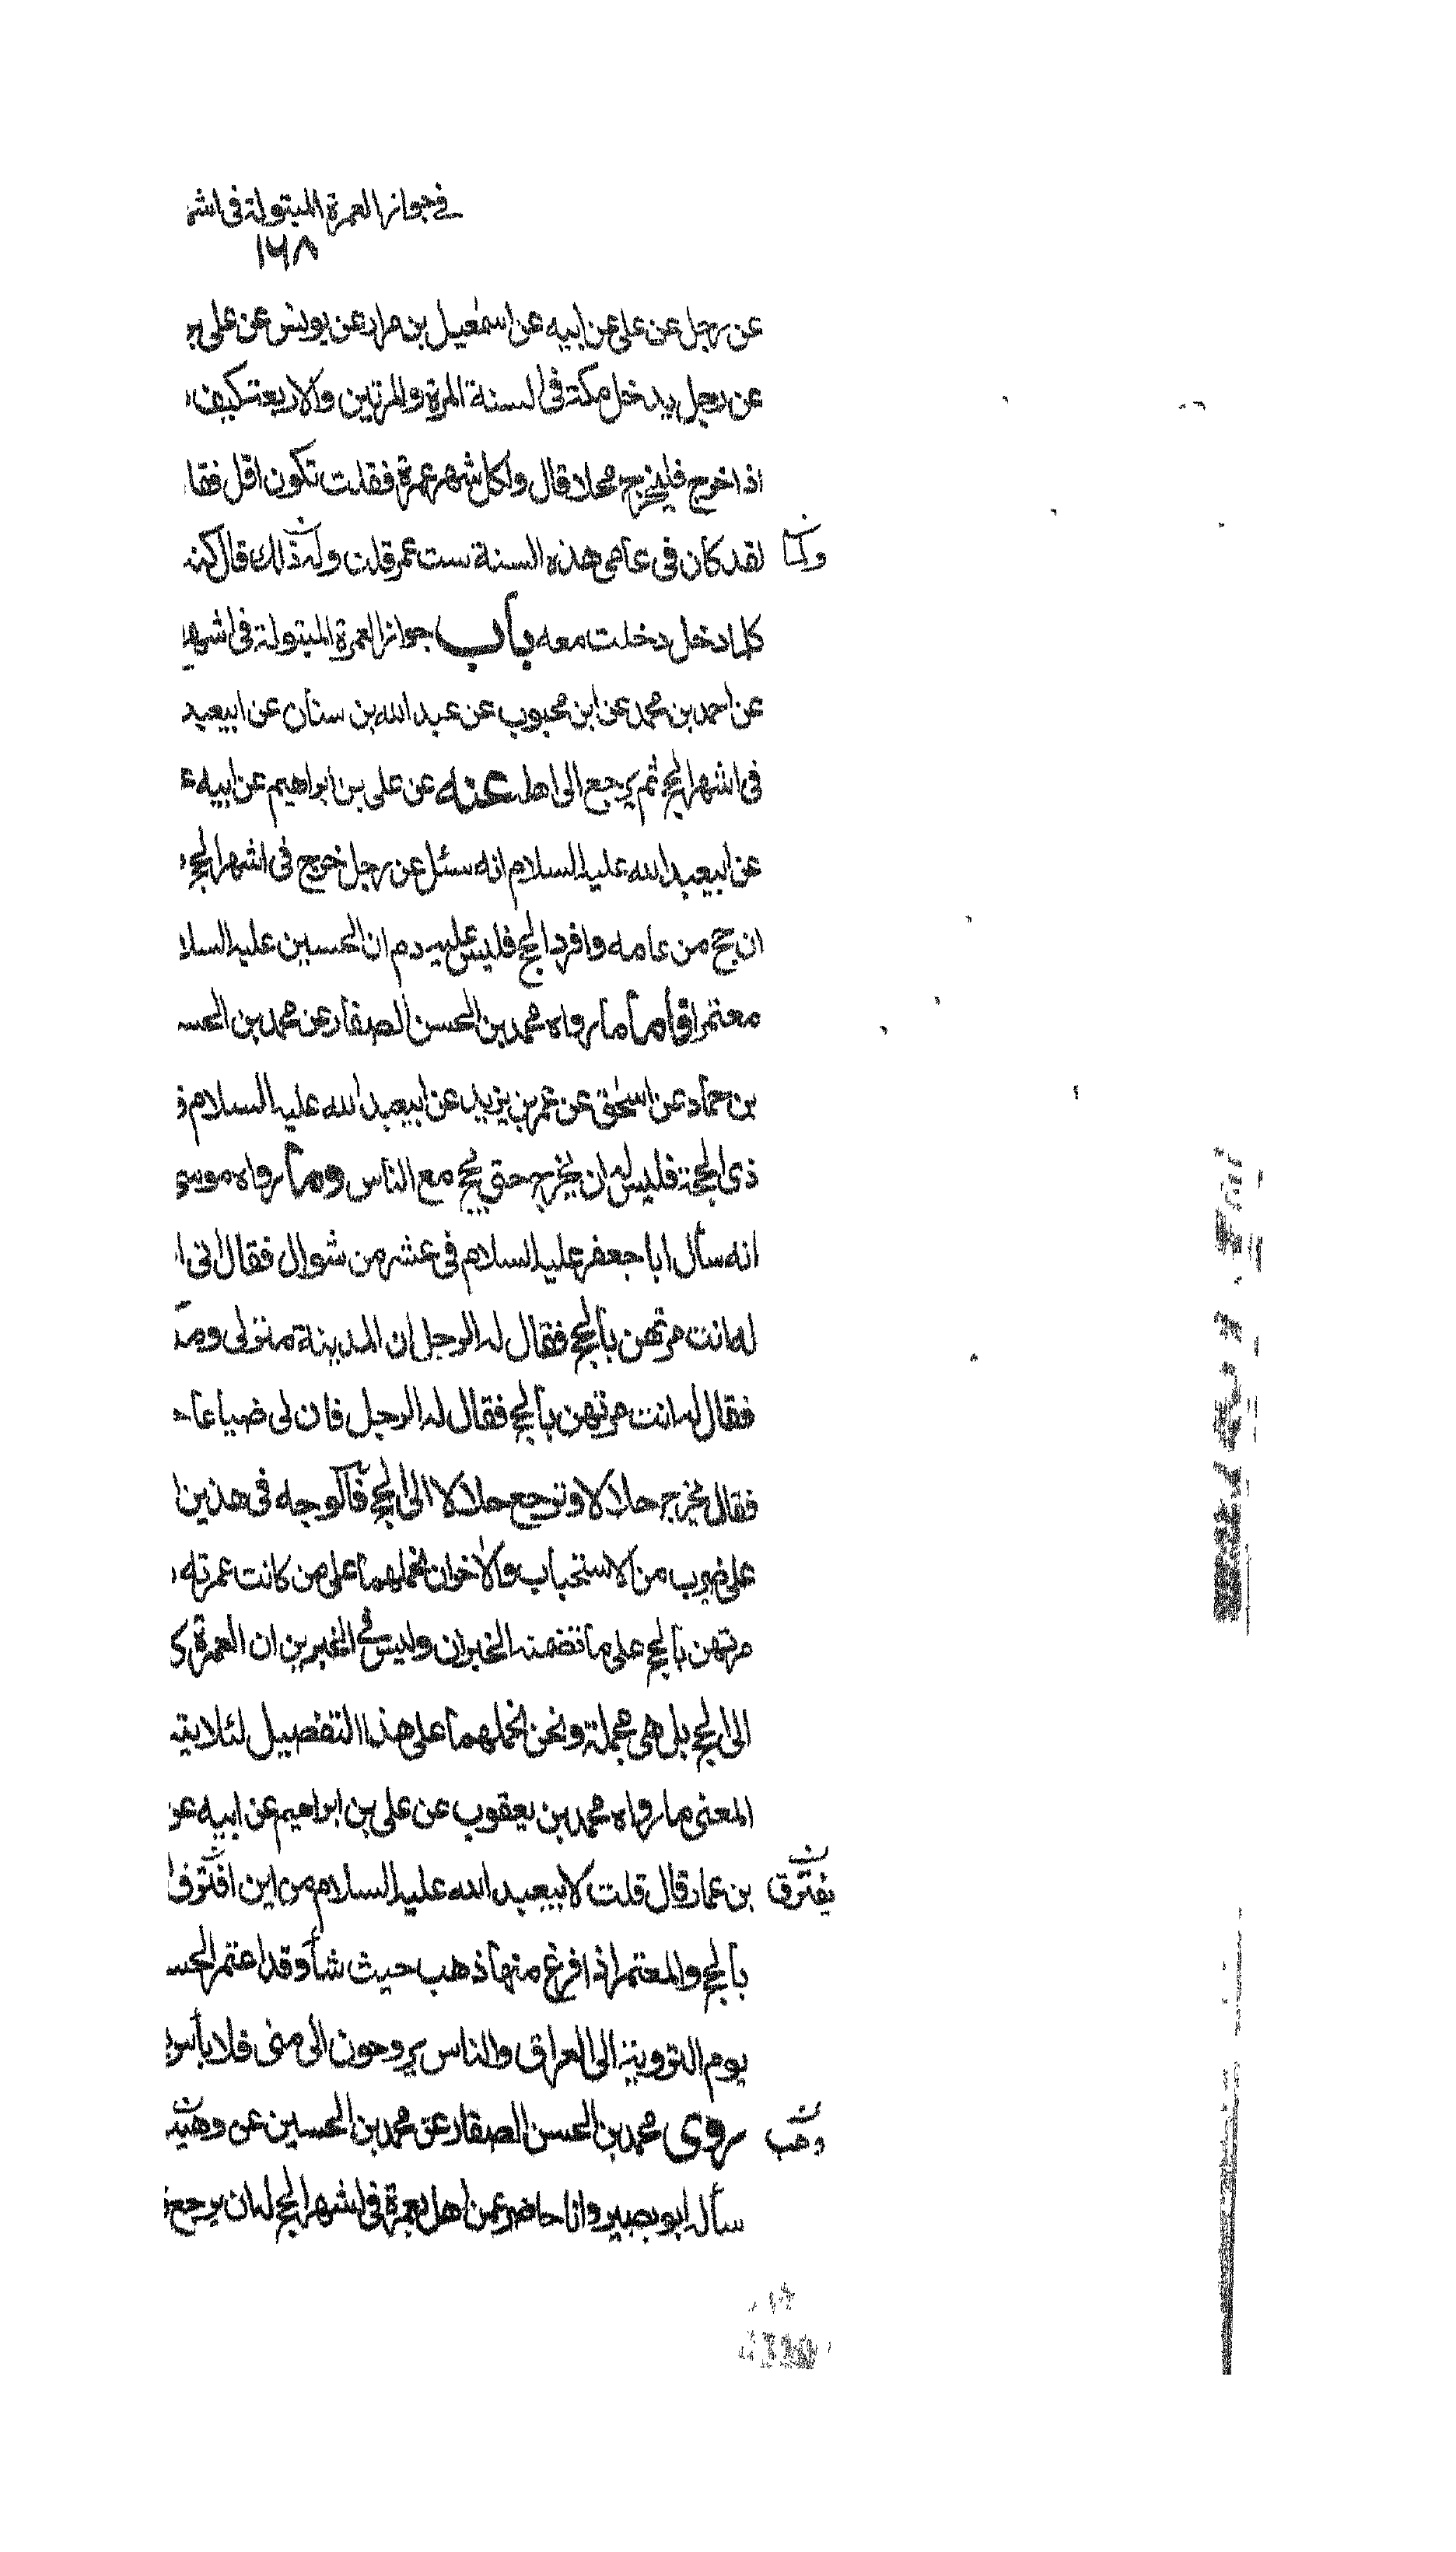 في جواز العمرة المبتولة في اشه
١٦٨
عن رجل عن علي عن ابيه عن اسمعيل بن مرار عن يونس عن علي بن
عن رجل يدخل مكة في السنة المرة والمرتين والاربعة كيف
اذا خرج فليخرج محلا قال ولكل شهر عمرة فقلت تكون اقل فقا
لقد كان في عامي هذه السنة ست عمر قلت ولم ذلك قال كنت
ولما
كلما دخل دخلت معه باب جواز العمرة المبتولة في اشهر
عن احمد بن محمد عن ابن محبوب عن عبد الله بن سنان عن ابيعبد
في اشهر الحج ثم يرجع الى اهله عنه عن علي بن ابراهيم عن ابيه ع
عن ابيعبد الله عليه السلام انه سئل عن رجل خرج في اشهر الحج
ان حج من عامه وافرد الحج فليس عليه دم ان الحسين عليه السلا
معتمرا فاما ما رواه محمد بن الحسن الصفار عن محمد بن الحسـ
بن حماد عن اسحق عن عمر بن يزيد عن ابيعبد الله عليه السلام
ذي الحجة فليس له ان يخرج حتى يحج مع الناس وما رواه موسى
انه سأل ابا جعفر عليه السلام في عشر من شوال فقال اني ا
له انت مرتهن بالحج فقال له الرجل ان المدينة منزلي ومكـ
فقال له انت مرتهن بالحج فقال له الرجل فان لي ضياعا حـ
فقال تخرج حلالا وترجع حلالا الى الحج فالوجه في هذين ا
على ضرب من الاستحباب والاخر ان نحملهما على من كانت عمرته
مرتهن بالحج على ما تضمنه الخبران وليس في الخبرين ان العمرة كـ
الى الحج بل هي مجملة ونحن نحملهما على هذا التفصيل لئلا يتـ
المعنى ما رواه محمد بن يعقوب عن علي بن ابراهيم عن ابيه عن
بن عمار قال قلت لابيعبد الله عليه السلام من اين افترق ا
يفترق
بالحج والمعتمر اذا فرغ منها ذهب حيث شاء وقد اعتمر الحسـ
يوم التروية الى العراق والناس يروحون الى منى فلا بأس
روى محمد بن الحسن الصفار عن محمد بن الحسين عن وهيب
وهب
سأله ابو بصير وانا حاضر عمن اهل بعمرة في اشهر الحج له ان يرجع